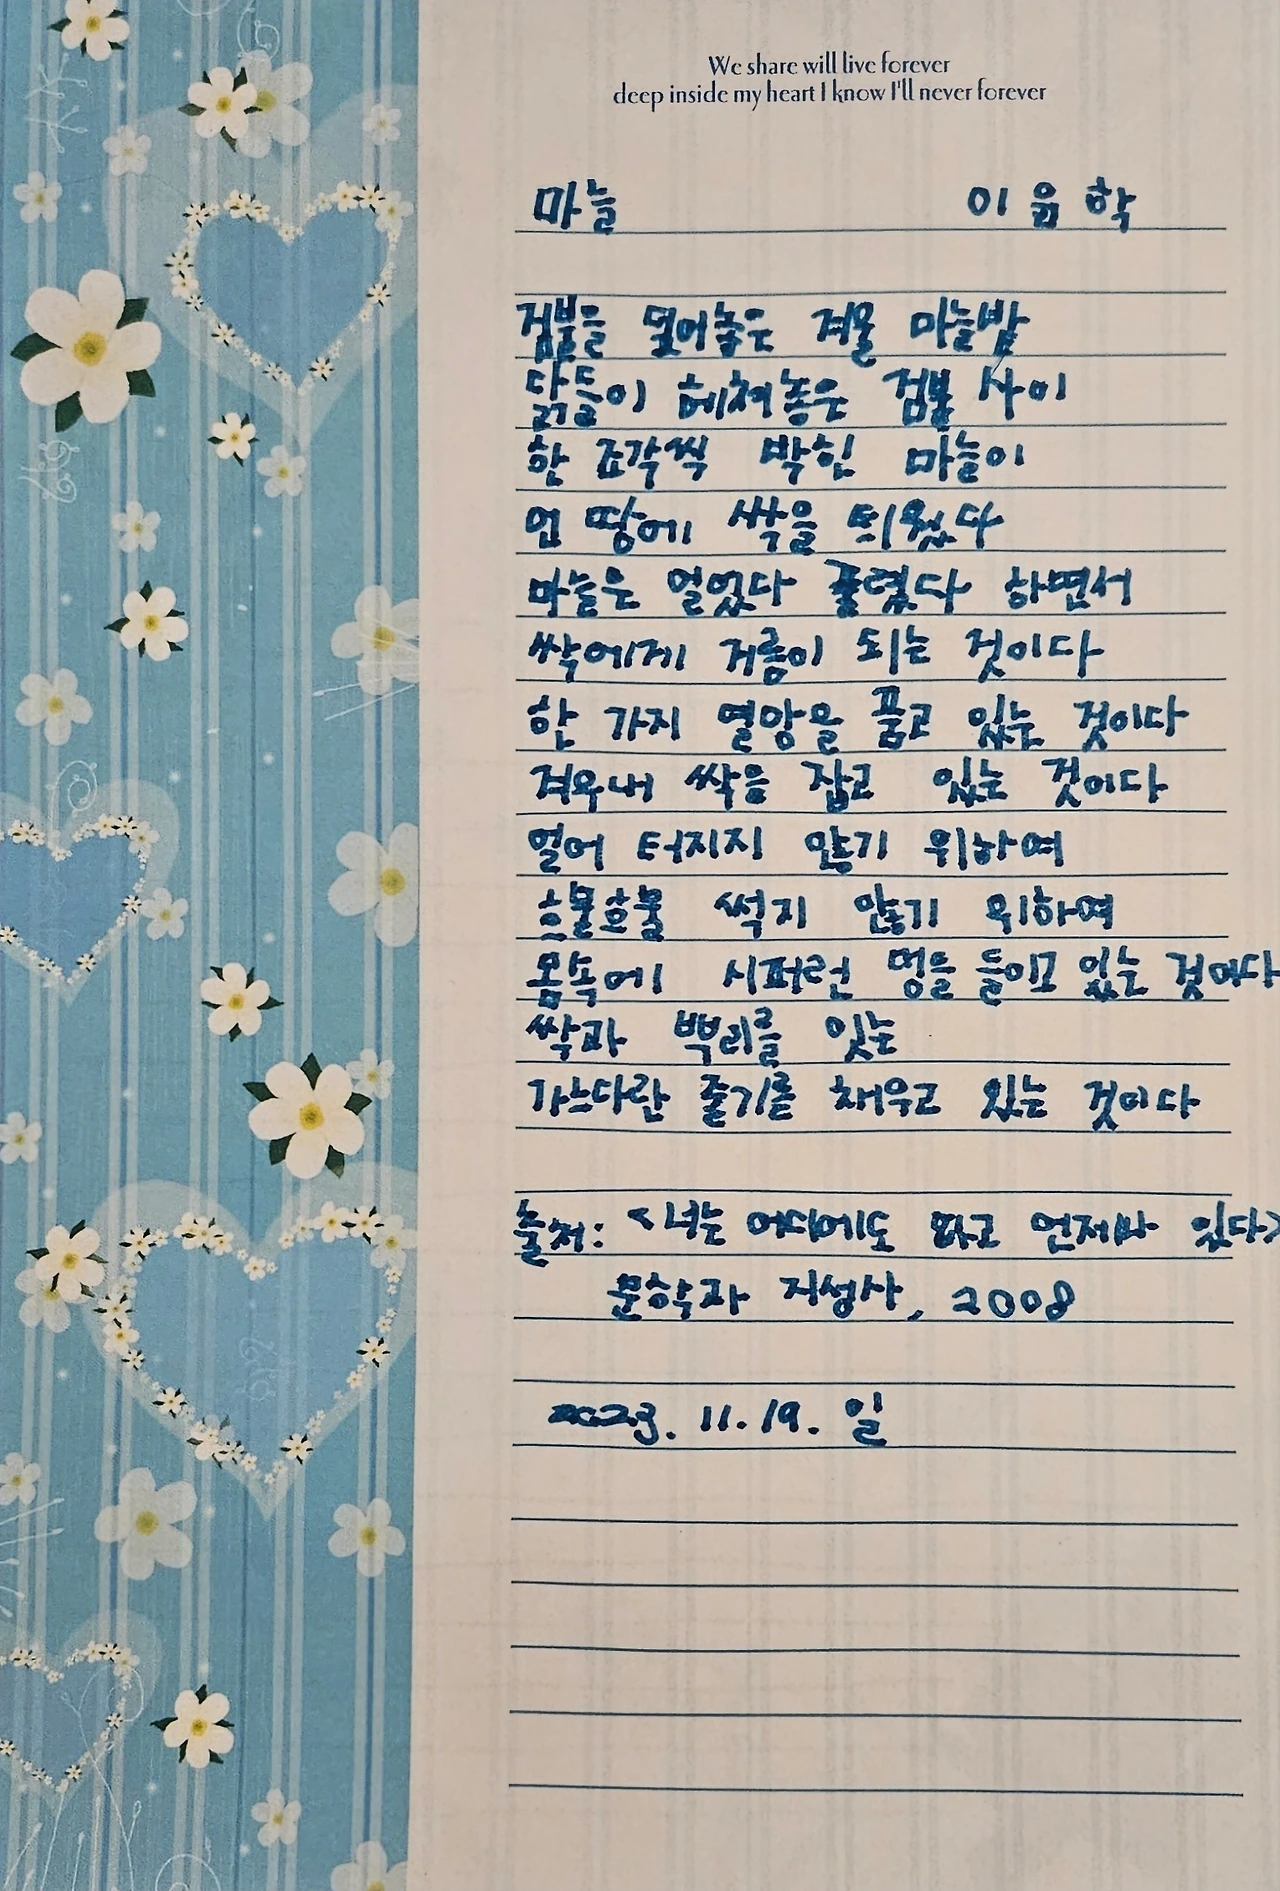 We share will live forever
deep inside my heart I know I'll never forever
마늘 이윤학
검불을 덮어놓은 겨울 마늘밭
닭들이 헤쳐놓은 검불 사이
한 조각씩 박힌 마늘이
언 땅에 싹을 틔웠다
마늘은 얼었다 풀렸다 하면서
싹에게 거름이 되는 것이다
한 가지 열망을 품고 있는 것이다
겨우내 싹을 잡고 있는 것이다
얼어 터지지 않기 위하여
흐물흐물 썩지 않기 위하여
몸속에 시퍼런 멍을 들이고 있는 것이다
싹과 뿌리를 잇는
가느다란 줄기를 채우고 있는 것이다
출처: <너는 어디에도 없고 언제나 있다>
문학과 지성사, 2008
2023. 11. 19. 일